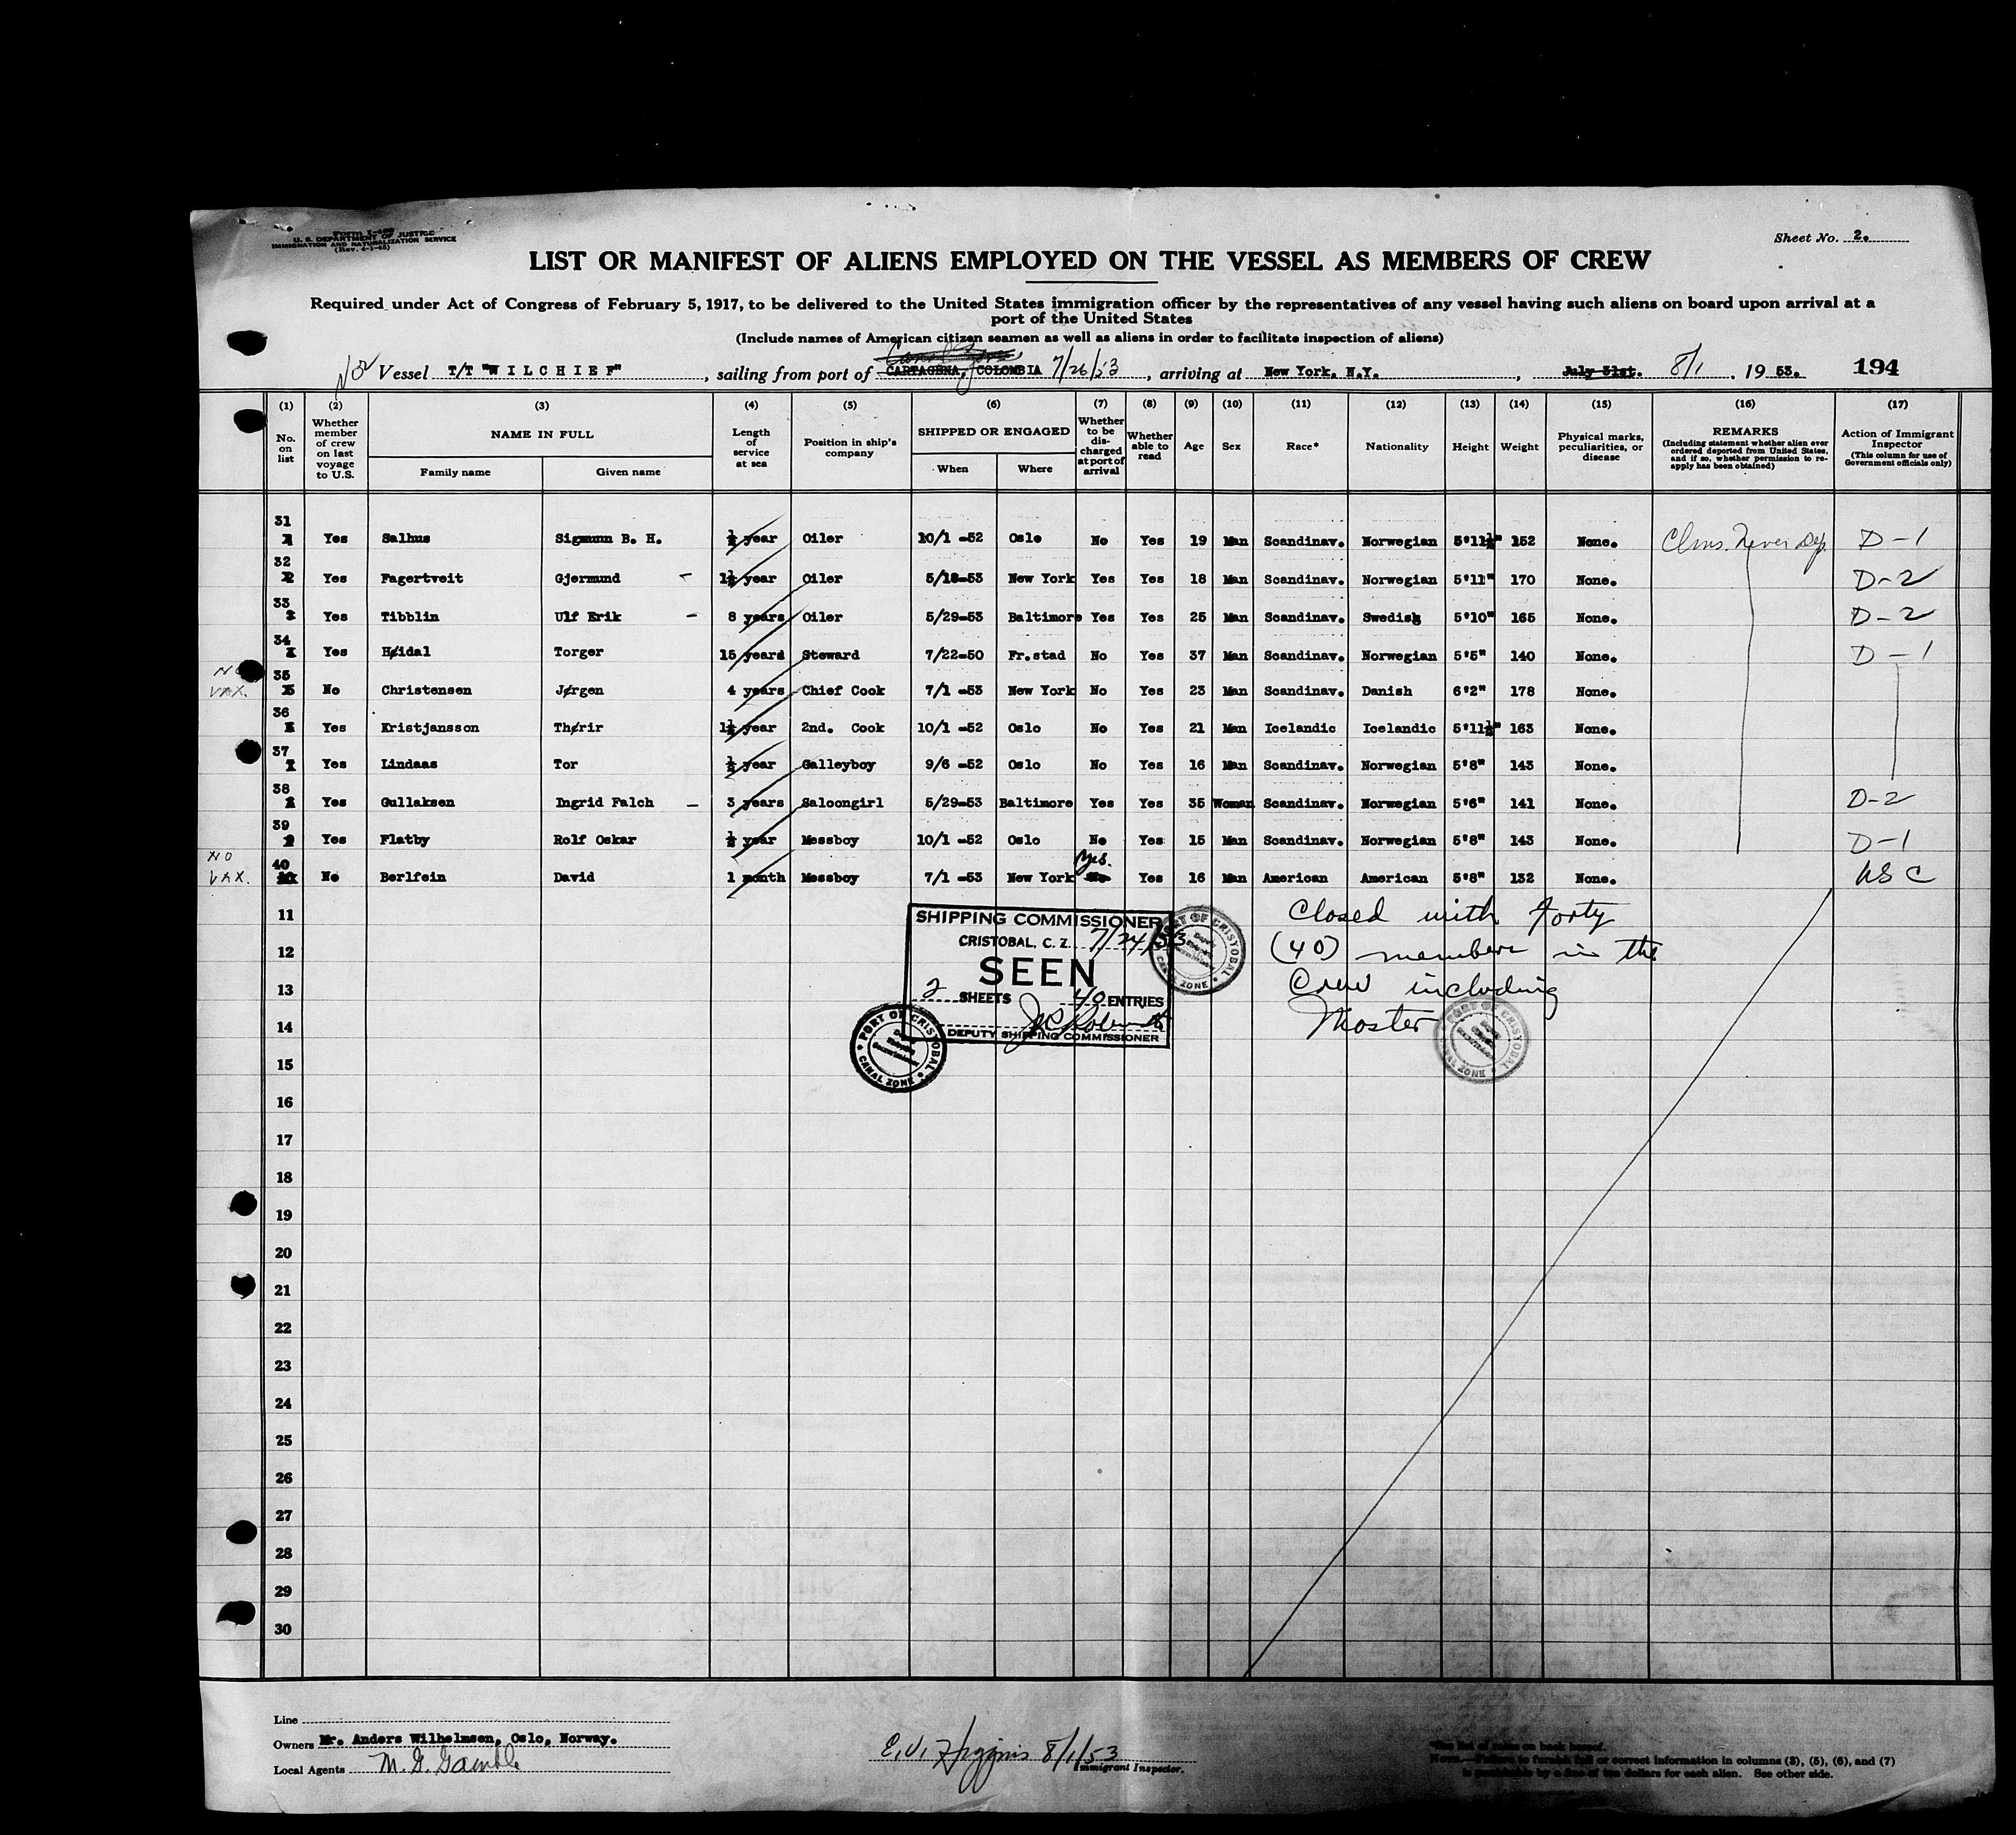 Form I-489
U. S. DEPARTMENT OF JUSTICE
IMMIGRATION AND NATURALIZATION SERVICE
(Rev. 4-1-45)
Sheet No. 2.
LIST OR MANIFEST OF ALIENS EMPLOYED ON THE VESSEL AS MEMBERS OF CREW
Required under Act of Congress of February 5, 1917, to be delivered to the United States immigration officer by the representatives of any vessel having such aliens on board upon arrival at a
port of the United States
(Include names of American citizen seamen as well as aliens in order to facilitate inspection of aliens)
Vessel T/T "WILCHIEF", sailing from port of CARTAGENA, COLOMBIA 7/26/53, arriving at New York, N.Y., July 31st. 8/1, 1953. 194
(1) (2) (3) (4) (5) (6) (7) (8) (9) (10) (11) (12) (13) (14) (15) (16) (17)
No. on list
Whether member of crew on last voyage to U.S.
NAME IN FULL
Family name
Given name
Length of service at sea
Position in ship's company
SHIPPED OR ENGAGED
When
Where
Whether to be discharged at port of arrival
Whether able to read
Age
Sex
Race*
Nationality
Height
Weight
Physical marks, peculiarities, or disease
REMARKS
(Including statement whether alien ever ordered deported from United States, and if so, whether permission to reapply has been obtained)
Action of Immigrant Inspector
(This column for use of Government officials only)
31 Yes Salhus Sigmunn B. H. ½ year Oiler 10/1 -52 Oslo No Yes 19 Man Scandinav. Norwegian 5'11½" 152 None. Clms. Never Dep. D-1
32 Yes Fagertveit Gjermund - 1½ year Oiler 5/18-53 New York Yes Yes 18 Man Scandinav. Norwegian 5'11" 170 None. D-2
33 Yes Tibblin Ulf Erik - 8 years Oiler 5/29-53 Baltimore Yes Yes 25 Man Scandinav. Swedish 5'10" 165 None. D-2
34 Yes Høidal Torger 15 years Steward 7/22-50 Fr.stad No Yes 37 Man Scandinav. Norwegian 5'5" 140 None. D-1
NO VAX. 35 No Christensen Jørgen 4 years Chief Cook 7/1 -53 New York No Yes 23 Man Scandinav. Danish 6'2" 178 None.
36 Yes Kristjansson Thørir 1½ year 2nd. Cook 10/1 -52 Oslo No Yes 21 Man Icelandic Icelandic 5'11½" 163 None.
37 Yes Lindaas Tor ½ year Galleyboy 9/6 -52 Oslo No Yes 16 Man Scandinav. Norwegian 5'8" 143 None.
38 Yes Gullaksen Ingrid Falch - 3 years Saloongirl 5/29-53 Baltimore Yes Yes 35 Woman Scandinav. Norwegian 5'6" 141 None. D-2
39 Yes Flatby Rolf Oskar ½ year Messboy 10/1 -52 Oslo No Yes 15 Man Scandinav. Norwegian 5'8" 143 None. D-1
NO VAX. 40 No Berlfein David 1 month Messboy 7/1 -53 New York Yes. Yes 16 Man American American 5'8" 132 None. USC
11
12
13
14
15
16
17
18
19
20
21
22
23
24
25
26
27
28
29
30
SHIPPING COMMISSIONER
CRISTOBAL, C. Z. 7/24/53
SEEN
2 SHEETS 40 ENTRIES
DEPUTY SHIPPING COMMISSIONER
PORT OF CRISTOBAL
CANAL ZONE
PORT OF CRISTOBAL
CANAL ZONE
PORT OF CRISTOBAL
CANAL ZONE
Closed with Forty
(40) members in the
Crew including
Master
Line
Owners Mr. Anders Wilhelmsen, Oslo, Norway.
Local Agents M. G. Gamble
E. V. Higgins 8/1/53
Immigrant Inspector.
*See list of races on back hereof.
NOTE.—Failure to furnish full or correct information in columns (3), (5), (6), and (7)
is punishable by a fine of ten dollars for each alien. See other side.